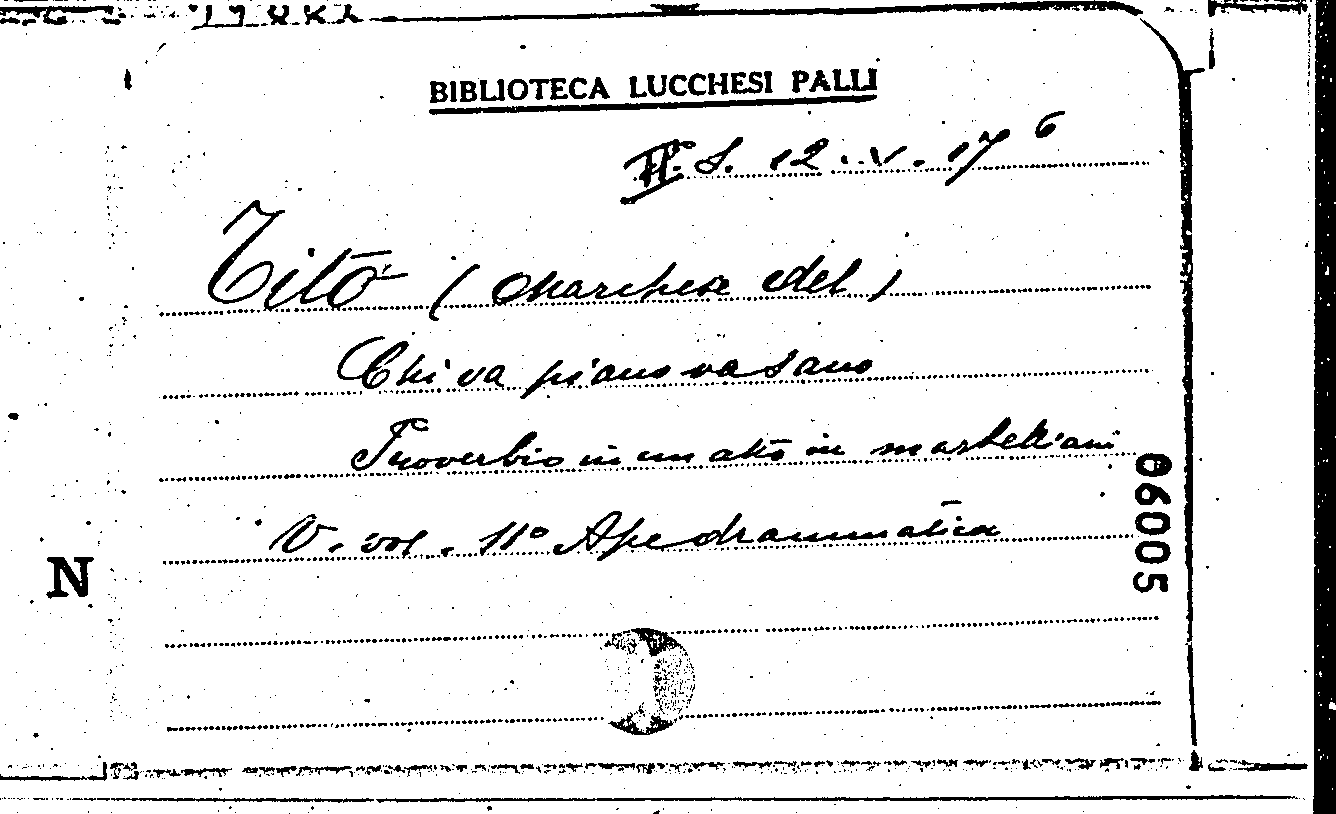 BIBLIOTECA LUCCHESI PALLI
S. 12. V. 17 6
Tito (Marchese del)
Chi va piano va sano
Proverbio in un atto in martelliani
V. vol. 11° Ape drammatica
06005
N